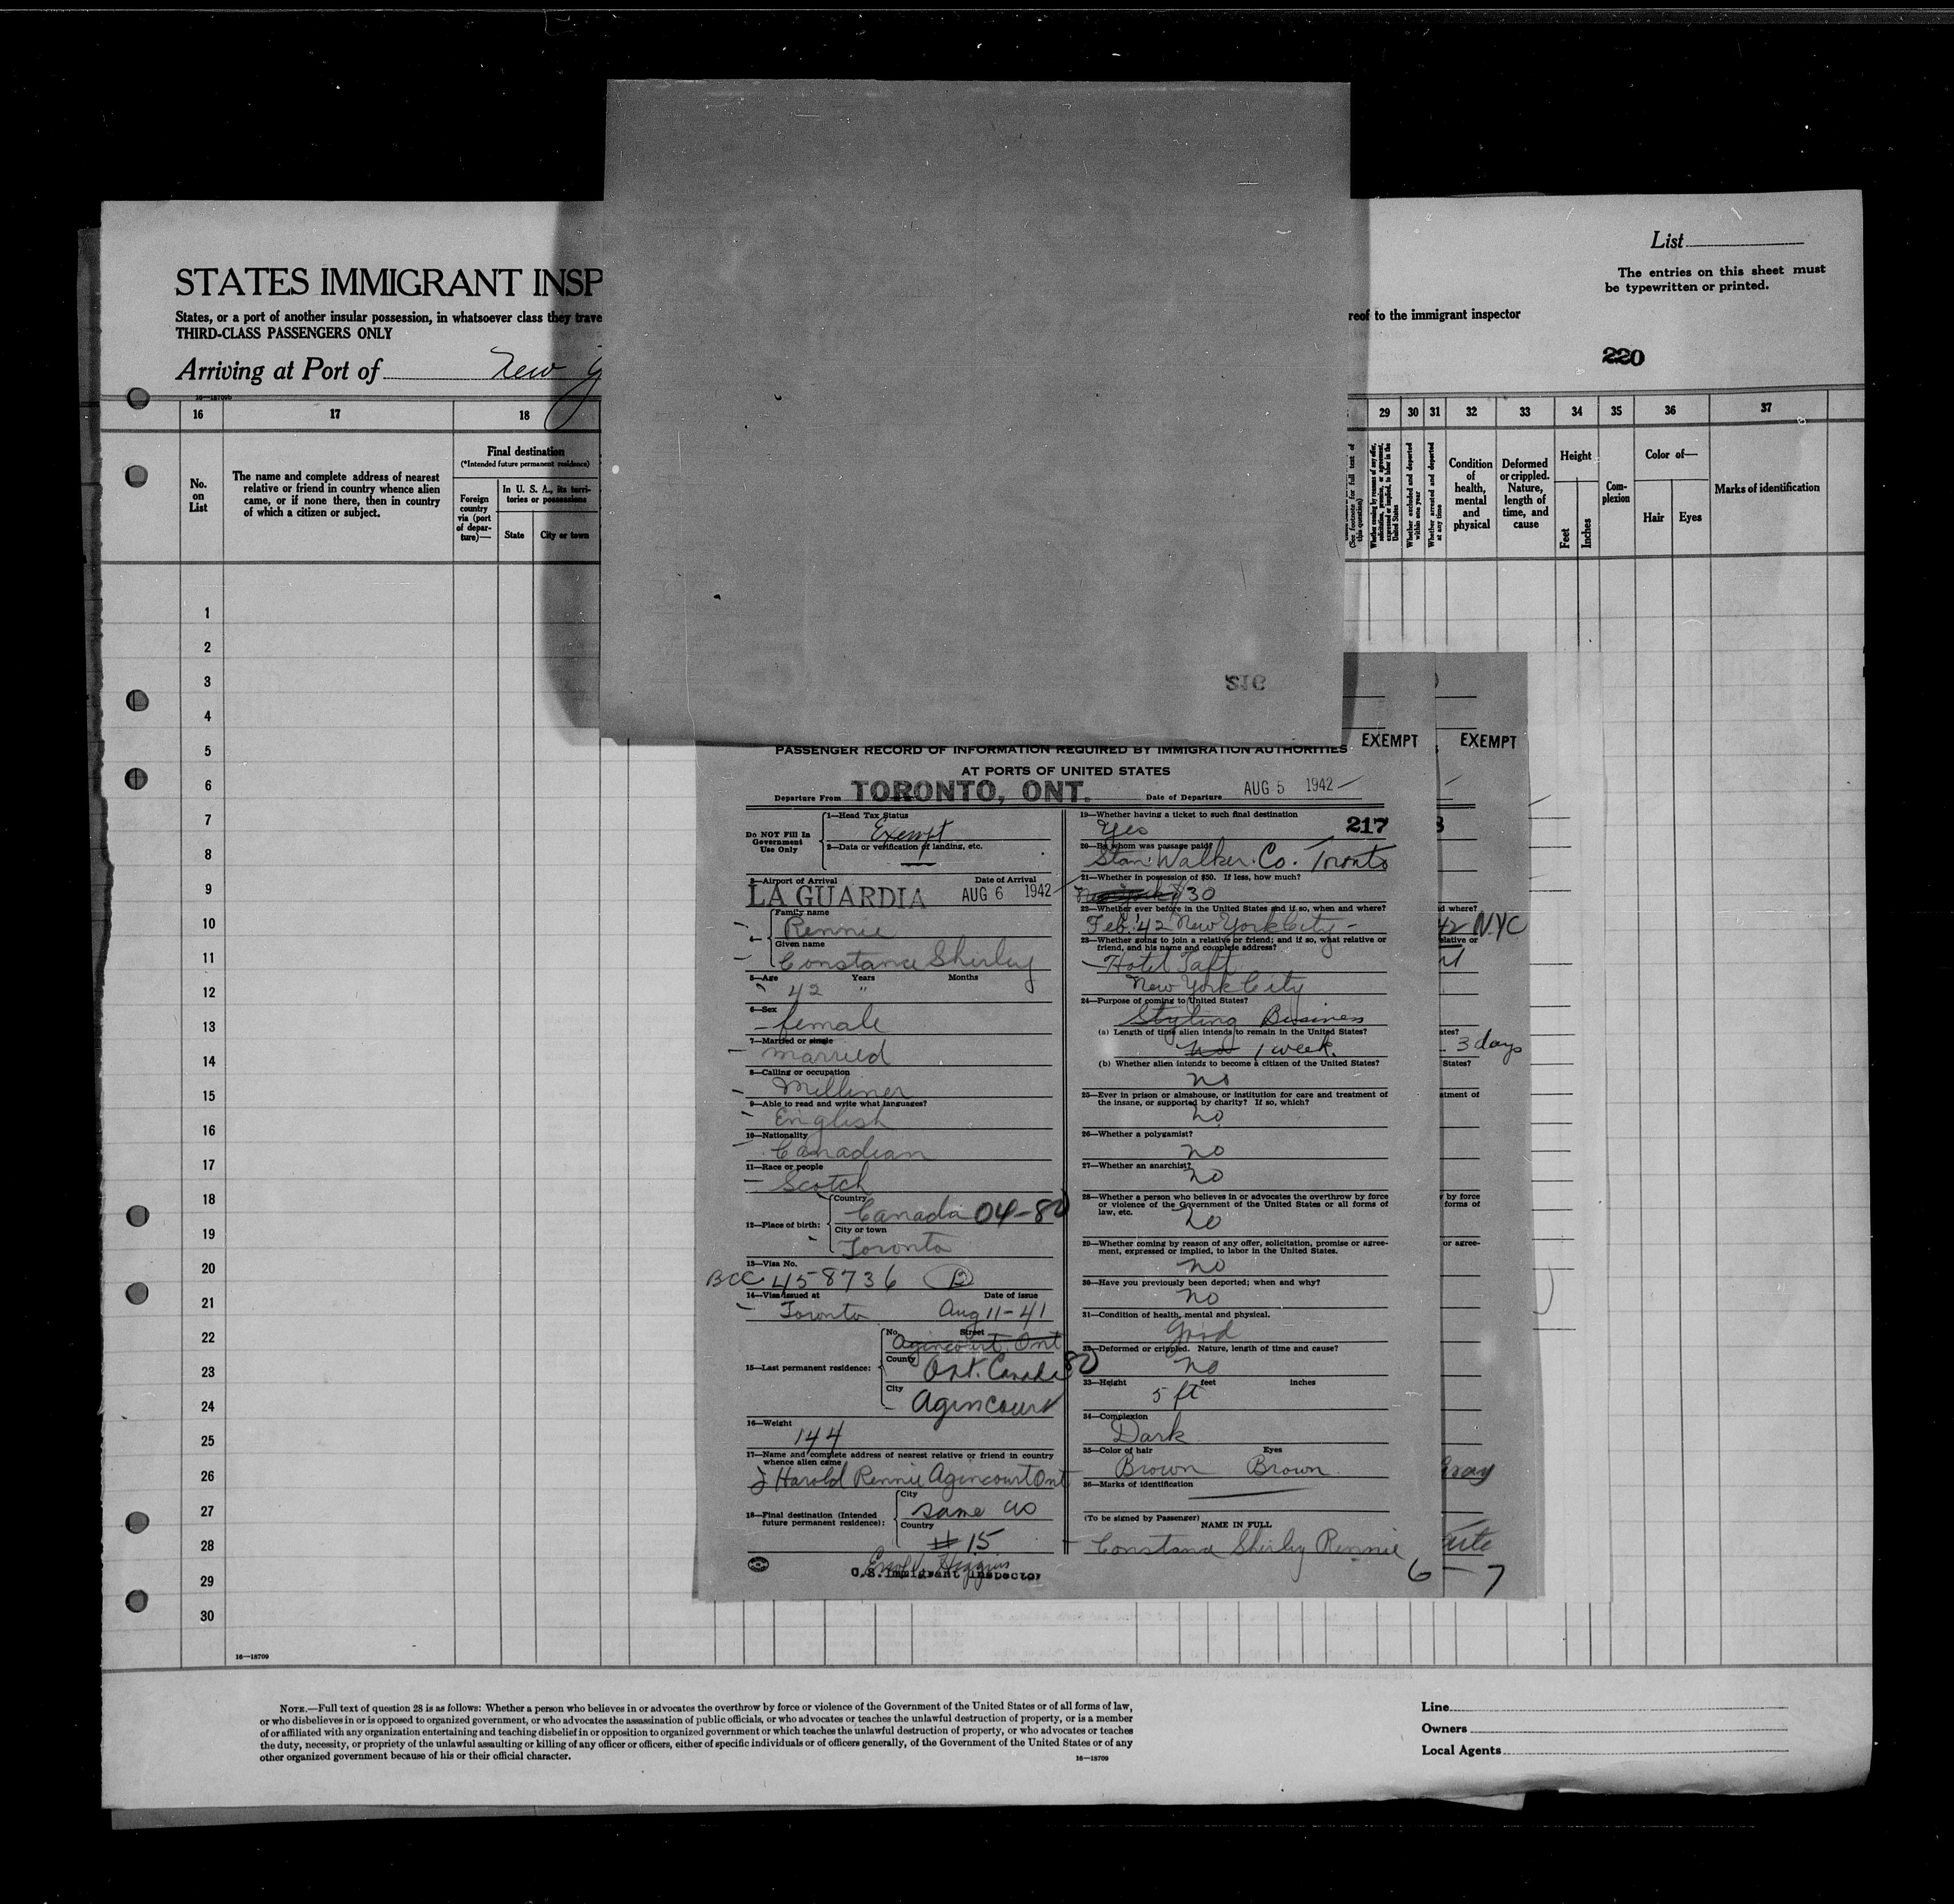 List
The entries on this sheet must
be typewritten or printed.
STATES IMMIGRANT INSP
States, or a port of another insular possession, in whatsoever class they trave
reof to the immigrant inspector
THIRD-CLASS PASSENGERS ONLY
220
Arriving at Port of New Y
16—18709b
16 17 18 29 30 31 32 33 34 35 36 37
No. on List
The name and complete address of nearest
relative or friend in country whence alien
came, or if none there, then in country
of which a citizen or subject.
Final destination
(*Intended future permanent residence)
Foreign country via (port of departure)—
In U. S. A., its terri-
tories or possessions
State
City or town
(See footnote for full text of
this question)
Whether coming by reason of any offer, solicitation, promise, or agreement, expressed or implied, to labor in the United States
Whether excluded and deported within one year
Whether arrested and deported at any time
Condition of health, mental and physical
Deformed or crippled. Nature, length of time, and cause
Height
Feet
Inches
Com-
plexion
Color of—
Hair
Eyes
Marks of identification
1
2
3
4
5
6
7
8
9
10
11
12
13
14
15
16
17
18
19
20
21
22
23
24
25
26
27
28
29
30
16—18709
216
EXEMPT
EXEMPT
PASSENGER RECORD OF INFORMATION REQUIRED BY IMMIGRATION AUTHORITIES
AT PORTS OF UNITED STATES
Departure From TORONTO, ONT. Date of Departure AUG 5 1942
Do NOT Fill In
Government
Use Only
1—Head Tax Status
Exempt
2—Data or verification of landing, etc.
3—Airport of Arrival Date of Arrival
LA GUARDIA AUG 6 1942
4—
Family name
Rennie
Given name
Constance Shirley
5—Age Years Months
42 "
6—Sex
female
7—Married or single
married
8—Calling or occupation
Milliner
9—Able to read and write what languages?
English
10—Nationality
Canadian
11—Race or people
Scotch
12—Place of birth:
Country
Canada 04-80
City or town
Toronto
13—Visa No.
BCC 458736 B
14—Visa issued at Date of issue
Toronto Aug 11-41
15—Last permanent residence:
No. Street
Agincourt, Ont
County
Ont. Canada 80
City
Agincourt
16—Weight
144
17—Name and complete address of nearest relative or friend in country
whence alien came
J Harold Rennie Agincourt Ont
18—Final destination (Intended
future permanent residence):
City
same as
Country
# 15
U.S. Immigrant Inspector
19—Whether having a ticket to such final destination
Yes 217
20—By whom was passage paid?
Stan. Walker. Co. Toronto
21—Whether in possession of $50. If less, how much?
New York $30
22—Whether ever before in the United States and if so, when and where?
Feb. '42 New York City -
23—Whether going to join a relative or friend; and if so, what relative or
friend, and his name and complete address?
Hotel Taft
New York City
24—Purpose of coming to United States?
Styling Business
(a) Length of time alien intends to remain in the United States?
no 1 week.
(b) Whether alien intends to become a citizen of the United States?
no
25—Ever in prison or almshouse, or institution for care and treatment of
the insane, or supported by charity? If so, which?
no
26—Whether a polygamist?
no
27—Whether an anarchist?
no
28—Whether a person who believes in or advocates the overthrow by force
or violence of the Government of the United States or all forms of
law, etc.
no
29—Whether coming by reason of any offer, solicitation, promise or agree-
ment, expressed or implied, to labor in the United States.
no
30—Have you previously been deported; when and why?
no
31—Condition of health, mental and physical.
Good
32—Deformed or crippled. Nature, length of time and cause?
no
33—Height feet inches
5 ft
34—Complexion
Dark
35—Color of hair Eyes
Brown Brown
36—Marks of identification
(To be signed by Passenger)
NAME IN FULL
Constance Shirley Rennie
6 — 7
8
d where?
42 NYC
elative or
ates?
3 days
States?
atment of
by force
forms of
or agree-
Gray
NOTE.—Full text of question 28 is as follows: Whether a person who believes in or advocates the overthrow by force or violence of the Government of the United States or of all forms of law,
or who disbelieves in or is opposed to organized government, or who advocates the assassination of public officials, or who advocates or teaches the unlawful destruction of property, or is a member
of or affiliated with any organization entertaining and teaching disbelief in or opposition to organized government or which teaches the unlawful destruction of property, or who advocates or teaches
the duty, necessity, or propriety of the unlawful assaulting or killing of any officer or officers, either of specific individuals or of officers generally, of the Government of the United States or of any
other organized government because of his or their official character.
16—18709
Line
Owners
Local Agents